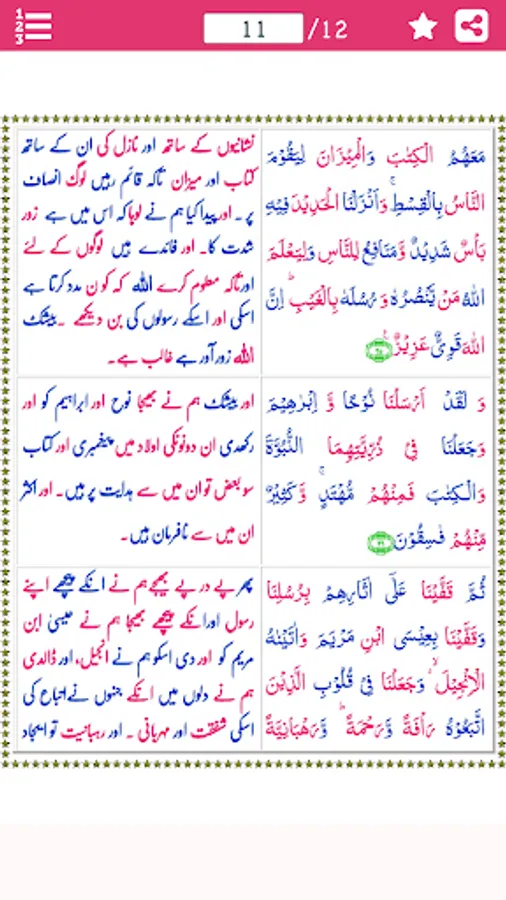 1
2
3
11
/12
مَعَهُمُ الْكِتٰبَ وَالْمِيْزَانَ لِيَقُوْمَ
النَّاسُ بِالْقِسْطِ ۚ وَاَنْزَلْنَا الْحَدِيْدَ فِيْهِ
بَاْسٌ شَدِيْدٌ وَّمَنَافِعُ لِلنَّاسِ وَلِيَعْلَمَ
اللّٰهُ مَنْ يَّنْصُرُهٗ وَرُسُلَهٗ بِالْغَيْبِ ۭ اِنَّ
اللّٰهَ قَوِىٌّ عَزِيْزٌ ۝۲۵
نشانیوں کے ساتھ اور نازل کی ان کے ساتھ
کتاب اور میزان تاکہ قائم رہیں لوگ انصاف
پر ۔ اور پیدا کیا ہم نے لوہا کہ اس میں ہے زور
شدت کا۔ اور فائدے ہیں لوگوں کے لئے
اور تاکہ معلوم کرے اللہ کہ کون مدد کرتا ہے
اسکی اور اسکے رسولوں کی بن دیکھے ۔ بیشک
اللہ زور آور ہے غالب ہے۔
وَ لَقَدْ اَرْسَلْنَا نُوْحًا وَّ اِبْرٰهِيْمَ
وَجَعَلْنَا فِىْ ذُرِّيَّتِهِمَا النُّبُوَّةَ
وَالْكِتٰبَ فَمِنْهُمْ مُّهْتَدٍ ۚ وَكَثِيْرٌ
مِّنْهُمْ فٰسِقُوْنَ ۝۲۶
اور بیشک ہم نے بھیجا نوح اور ابراہیم کو اور
رکھدی ان دونوںکی اولاد میں پیغمبری اور کتاب
سو بعض تو ان میں سے ہدایت پر ہیں۔ اور اکثر
ان میں سے نافرمان ہیں۔
ثُمَّ قَفَّيْنَا عَلٰٓى اٰثَارِهِمْ بِرُسُلِنَا
وَقَفَّيْنَا بِعِيْسَى ابْنِ مَرْيَمَ وَاٰتَيْنٰهُ
الْاِنْجِيْلَ ۙ وَجَعَلْنَا فِىْ قُلُوْبِ الَّذِيْنَ
اتَّبَعُوْهُ رَاْفَةً وَّرَحْمَةً ؕ وَّرَهْبَانِيَّةَ
پھر پے در پے بھیجے ہم نے انکے پیچھے اپنے
رسول اور انکے پیچھے بھیجا ہم نے عیسیٰ ابن
مریم کو اور دی اسکو ہم نے انجیل، اور ڈالدی
ہم نے دلوں میں انکے جنہوں نے اتباع کی
اسکی شفقت اور مہربانی ۔ اور رہبانیت تو ایجاد